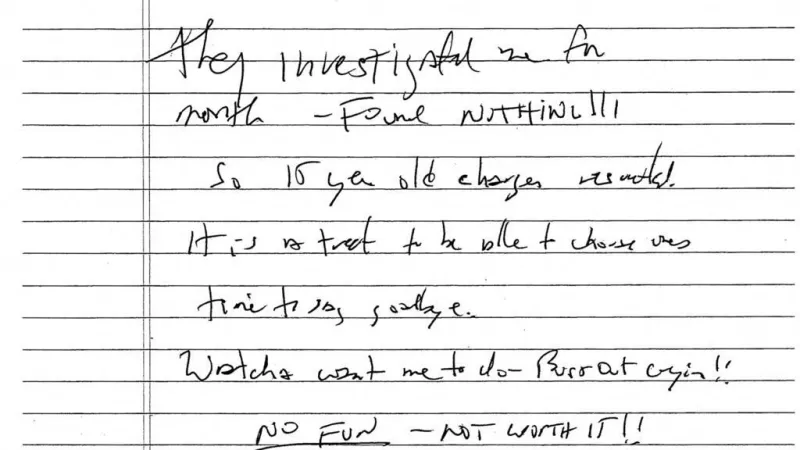 They investigated me for
month — FOUND NOTHING!!!
So 15 year old charges resulted.
It is a treat to be able to choose ones
time to say goodbye.
Watcha want me to do – Burst out cryin!!
NO FUN — NOT WORTH IT!!